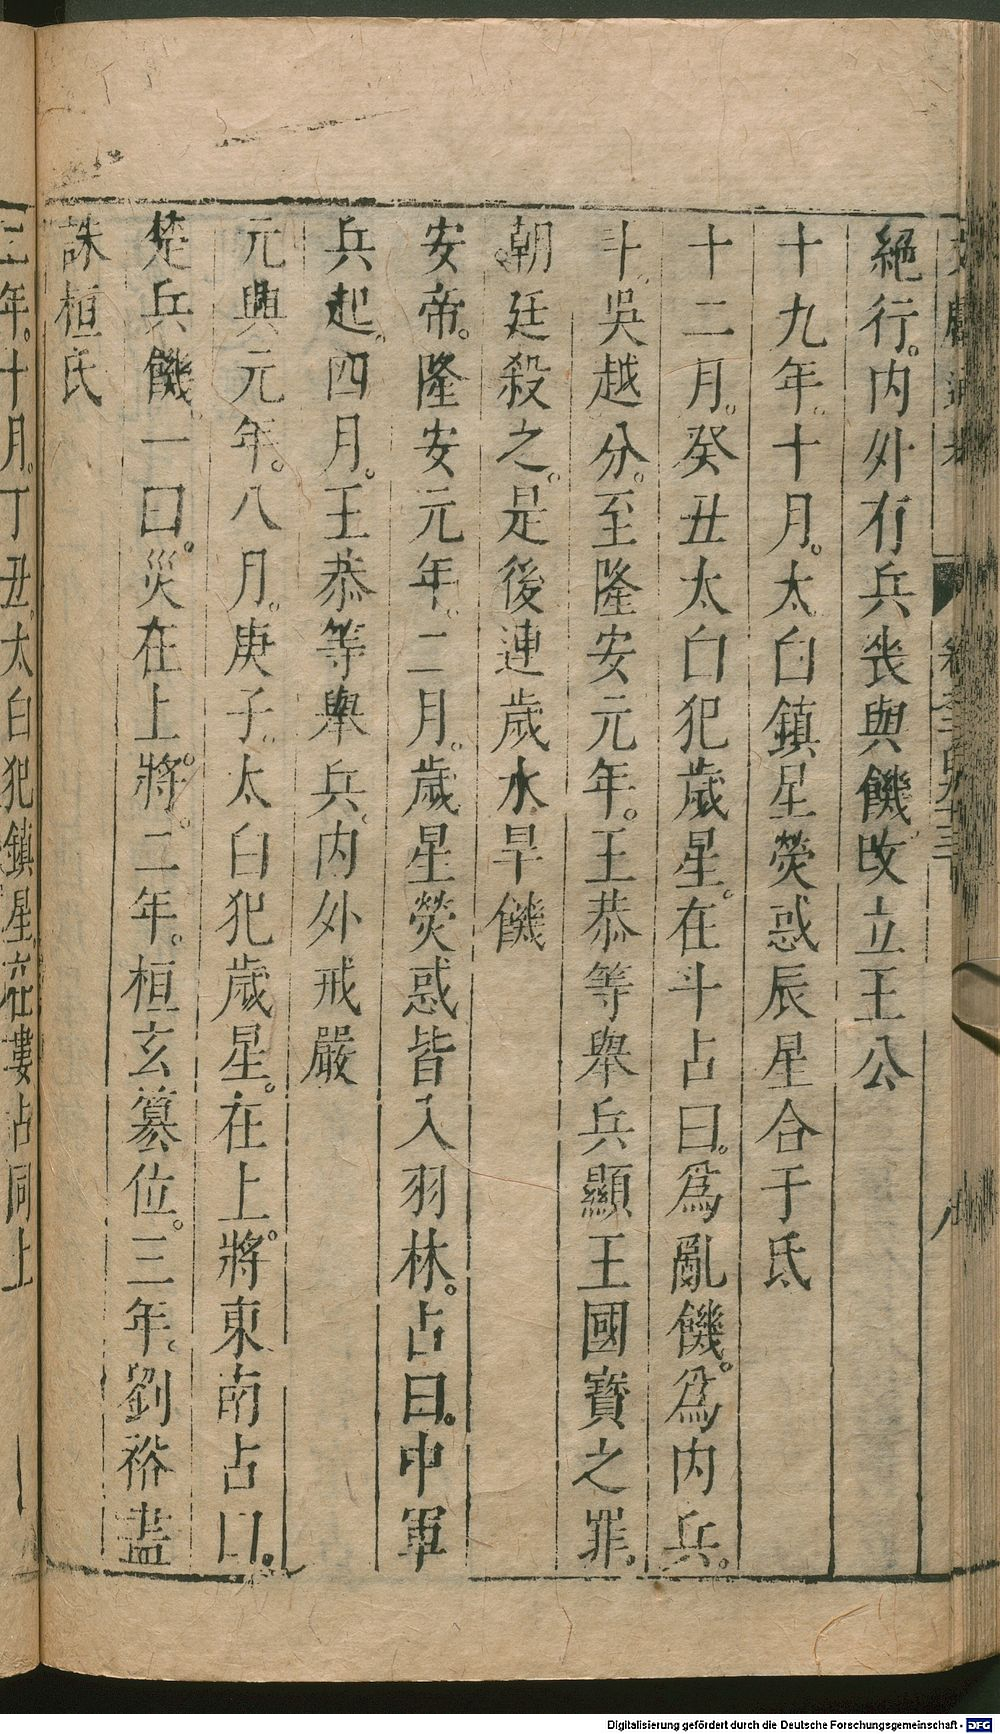 絕行。内外有兵喪與饑改立王公
十九年。十月。太白鎮星熒惑辰星合于氐
十二月。癸丑太白犯歲星。在斗占曰。爲亂饑。爲内兵。
斗。吳越分。至隆安元年。王恭等舉兵顯王國寶之罪。
朝廷殺之。是後連歲水旱饑
安帝。隆安元年。二月。歲星熒惑皆入羽林。占曰。中軍
兵起。四月。王恭等舉兵。内外戒嚴
元興元年。八月。庚子。太白犯歲星。在上將東南占曰。
楚兵饑。一曰。災在上將。二年。桓玄篡位。三年。劉裕盡
誅桓氏
三年。十月。丁丑。太白犯鎮星。在婁占同上
Digitalisierung gefördert durch die Deutsche Forschungsgemeinschaft - DFG